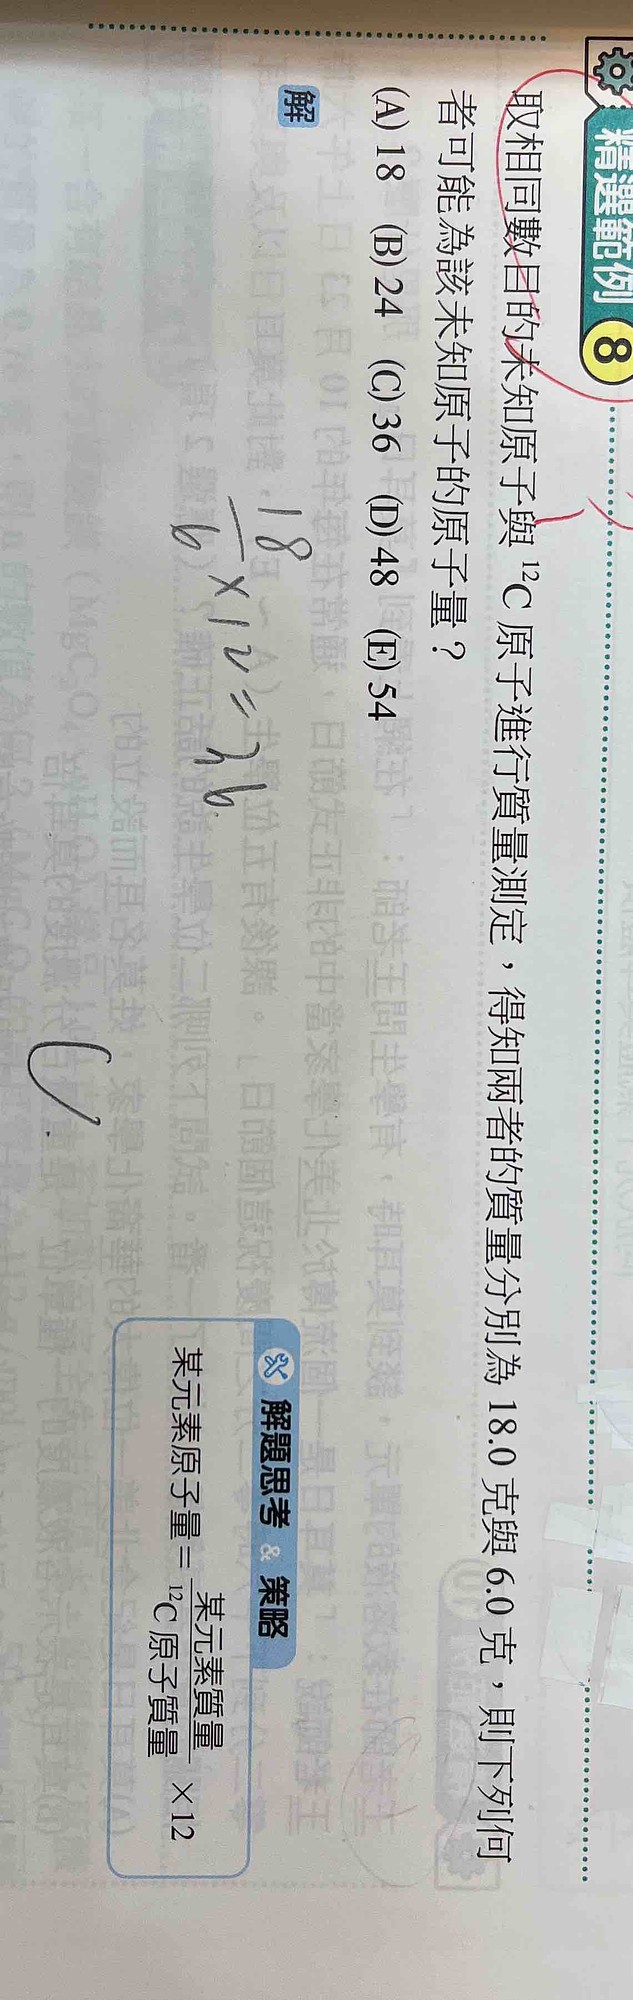 精選範例 8
取相同數目的未知原子與 ¹²C 原子進行質量測定，得知兩者的質量分別為 18.0 克與 6.0 克，則下列何
者可能為該未知原子的原子量？
(A) 18 (B) 24 (C) 36 (D) 48 (E) 54
解
18/6 × 12 = 36
解題思考 & 策略
某元素原子量 = 某元素質量/¹²C 原子質量 × 12